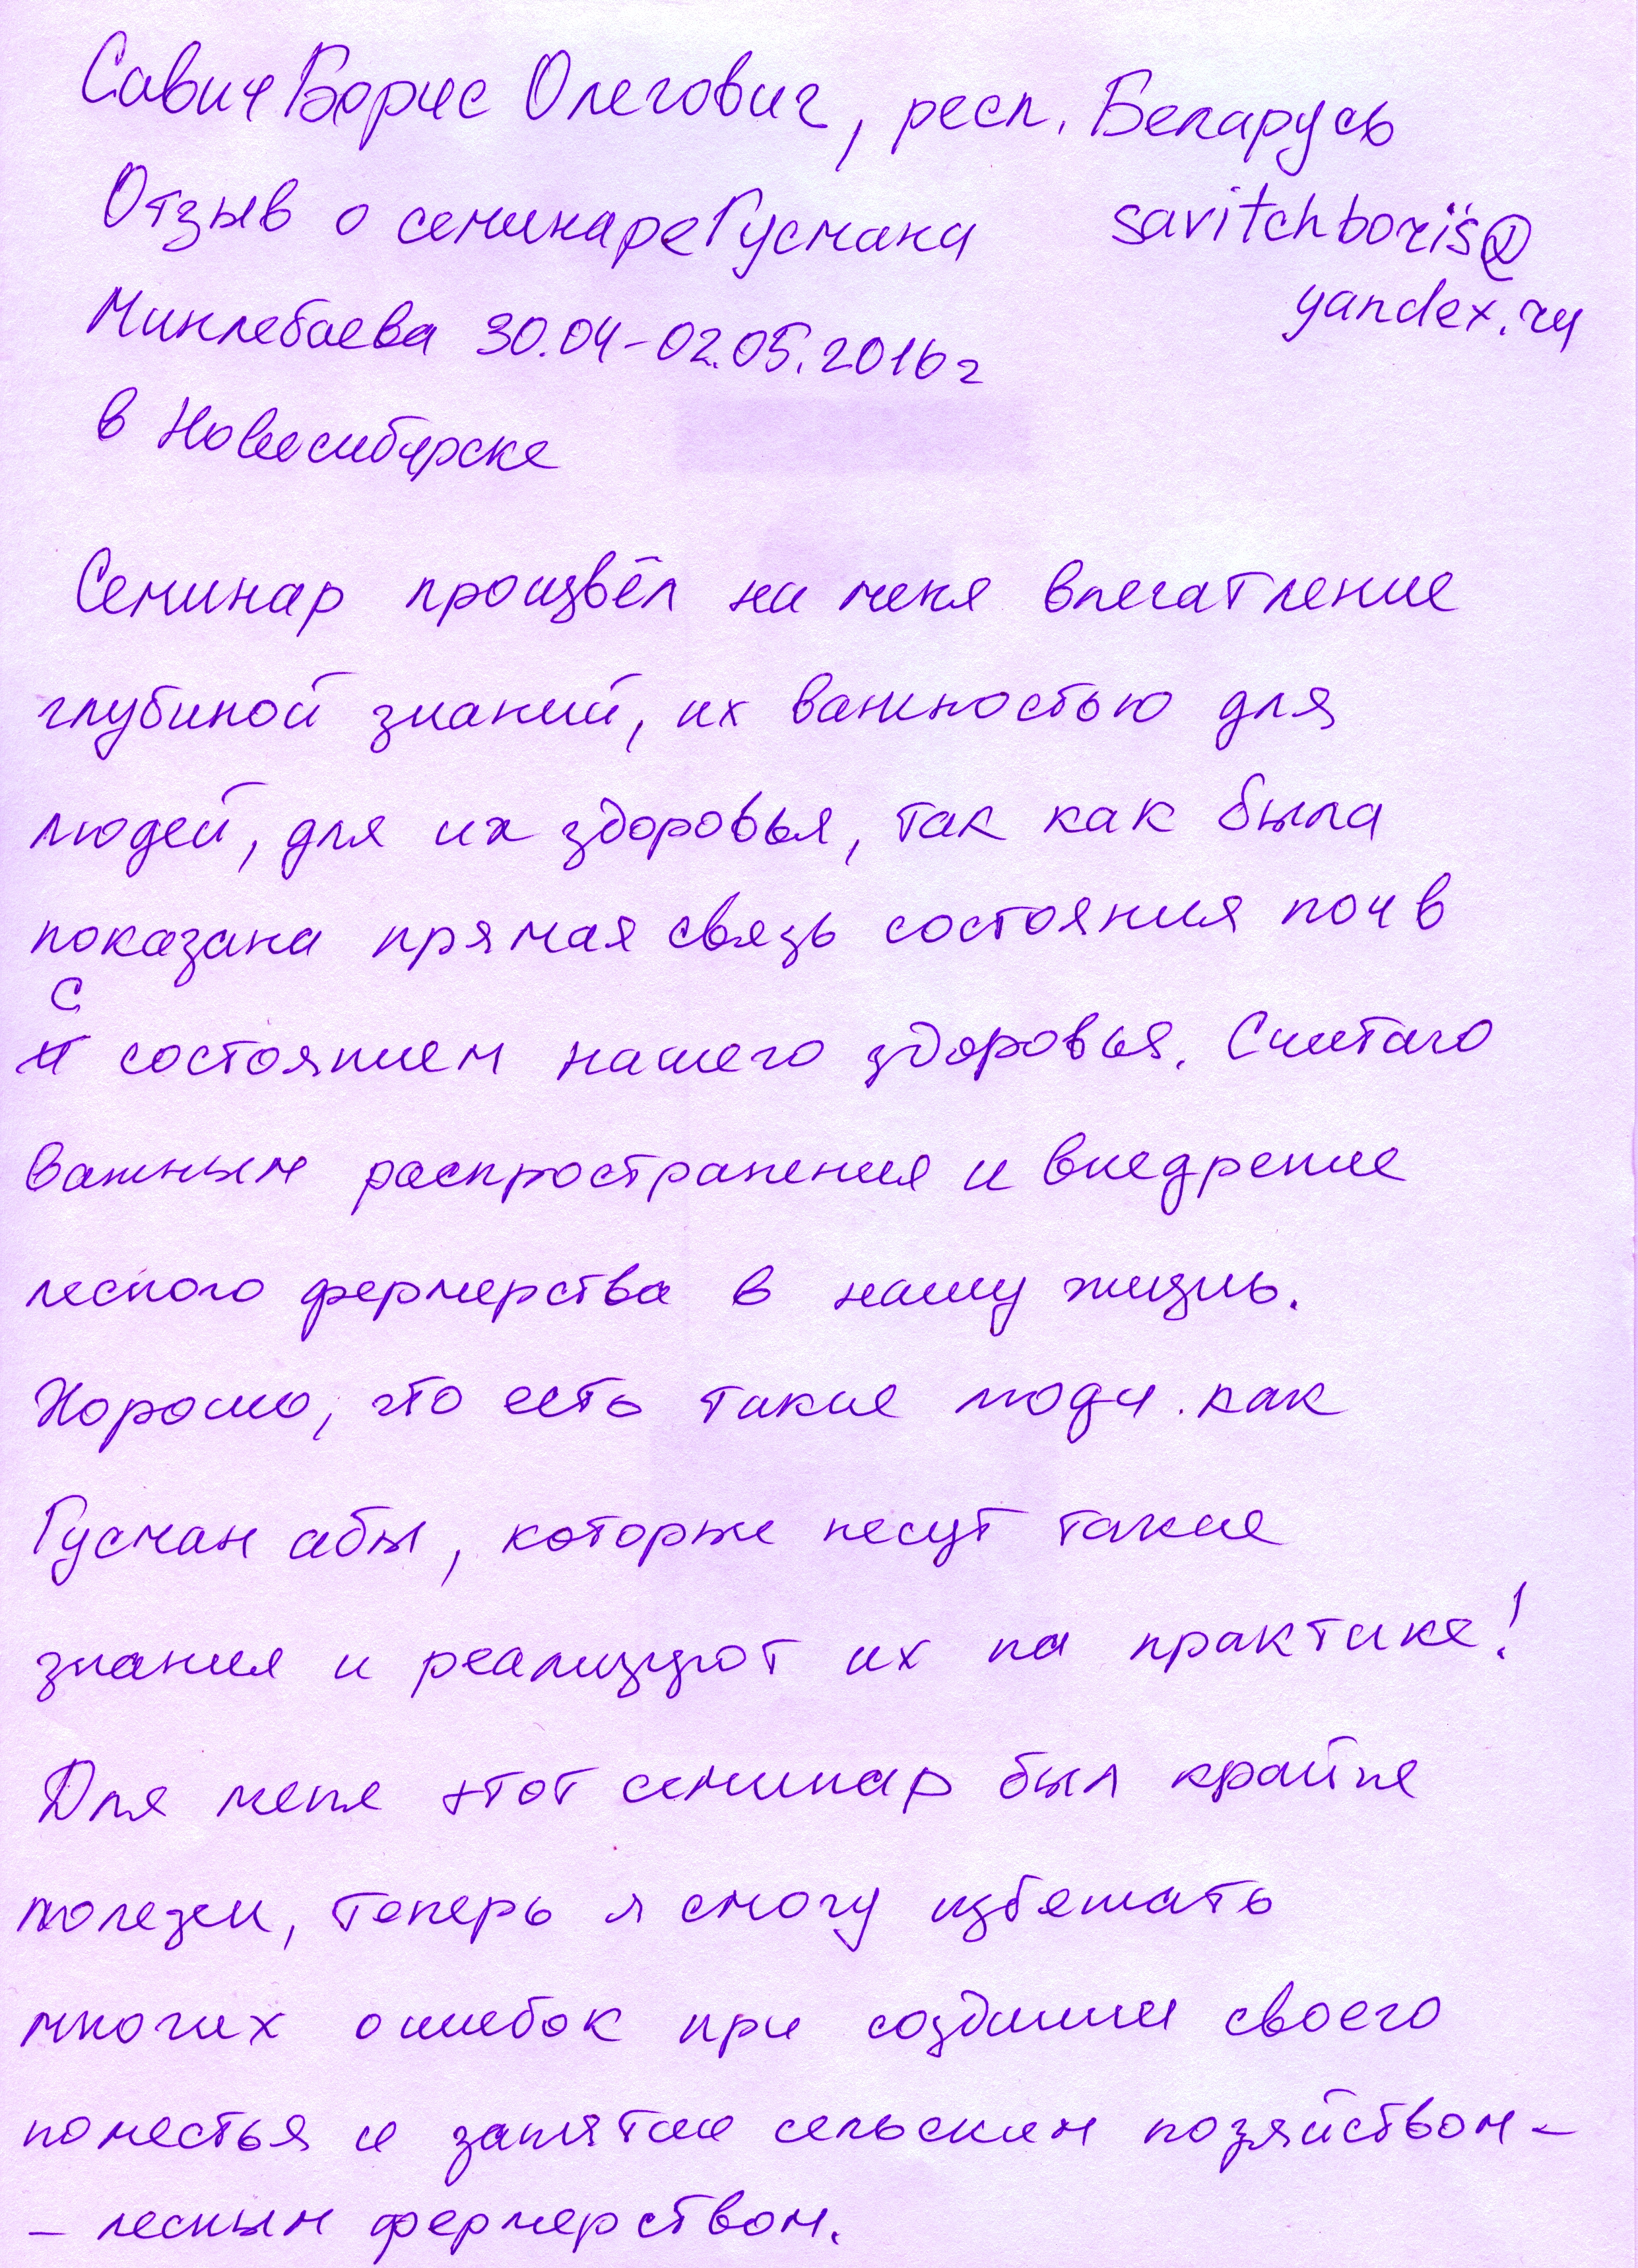 Савич Борис Олегович, респ. Беларусь
Отзыв о семинаре Гусмана savitchboris@
Минлебаева 30.04-02.05.2016г yandex.ru
в Новосибирске
Семинар произвёл на меня впечатление
глубиной знаний, их важностью для
людей, для их здоровья, так как была
показана прямая связь состояния почв
с
состоянием нашего здоровья. Считаю
важным распространения и внедрение
лесного фермерства в нашу жизнь.
Хорошо, что есть такие люди как
Гусман абы, которые несут такие
знания и реализуют их на практике!
Для меня этот семинар был крайне
полезен, теперь я смогу избежать
многих ошибок при создании своего
поместья и занятии сельским хозяйством-
- лесным фермерством.